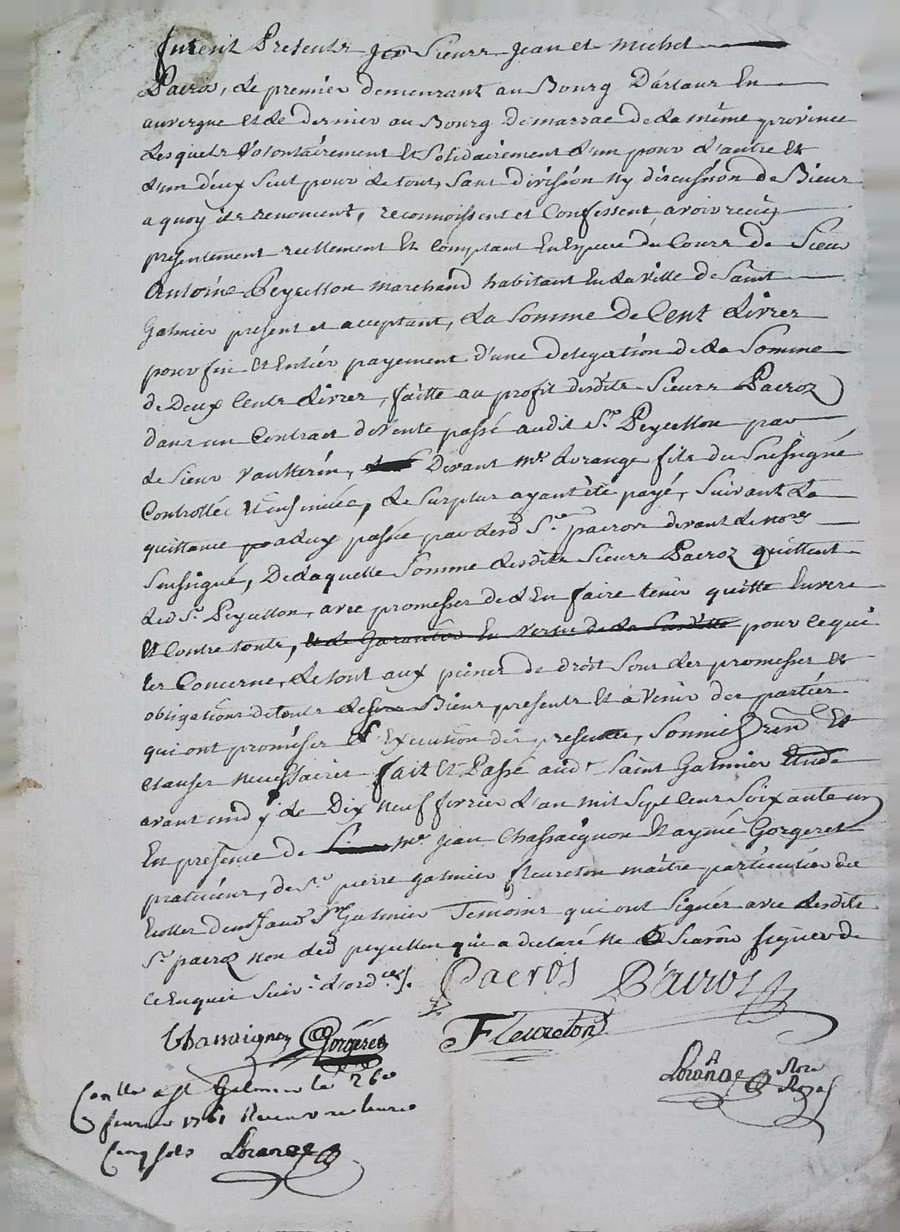 furent Presents Les Sieurs Jean et Michel
Pacros, Le premier demeurant au Bourg D'arlanc En
auvergne et Le dernier au Bourg De marsac de La même province
Lesquels Volontairement Et Solidairement L'un pour L'autre Et
L'un d'eux Seul pour Le tout, Sans division Ny discussion de Bien
a quoy ils renoncent, reconnoissent et Confessent avoir reçu
présentement reellement Et Comptant En Espece du Cours de Sieur
Antoine Peyellon marchand habitant En La ville de Saint
Galmier present et acceptant, La Somme De Cent Livres
pour fin Et Entier payement d'une delegation de La Somme
de Deux Cents Livres, faitte au profit desdits Sieurs Pacroz
dans un Contract de Vente passé audit Sr. Peyellon par
Le Sieur Vaulterin, Devant Me Lorange fils du Soussigné
Controllé Et insinuée, Le Surplus ayant été payé, Suivant La
quittance passée par Lesd Srs pacros devant Le nore
Soussigné, De Laquelle Somme Lesdits Sieurs Pacroz quittent
Led Sr. Peyellon, avec promesses de L'En faire tenir quitte Envers
Et Contre touts, Et de Garantie En Vertu de La pour Ce qui
Les Concerne, Le tout aux peines de droit Sous Les promesses Et
obligations de touts Biens presents Et à Venir des parties
qui ont promises Execution des presentes, Soumis. Et
Clauses necessaires fait Et Passé aud Saint Galmier Etude
avant midy Le Dix neuf fevrier L'an mil Sept Cens Soixante un
En presence de Me Jean Chassaignon Gorgeret
praticiens, de Sr. pierre galmier fleureton maître particulier des
St Galmier Temoins qui ont Signés avec Lesdits
Srs pacroz non Led peyellon qui a declaré Ne Scavoir Signer de
Ce Enquis Suivt L'ordce.
Pacros Pacros
Chassaignon Gorgeret Fleureton
Lorange Nore Royal
Conlle a St Galmier le 26e
fevrier 1761 Receu
Cinq sols Lorange